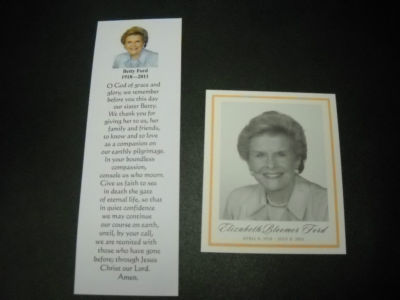 Betty Ford
1918—2011
O God of grace and
glory, we remember
before you this day
our sister Betty.
We thank you for
giving her to us, her
family and friends,
to know and to love
as a companion on
our earthly pilgrimage.
In your boundless
compassion,
console us who mourn.
Give us faith to see
in death the gate
of eternal life, so that
in quiet confidence
we may continue
our course on earth,
until, by your call,
we are reunited with
those who have gone
before; through Jesus
Christ our Lord.
Amen.
Elizabeth Bloomer Ford
APRIL 8, 1918 JULY 8, 2011